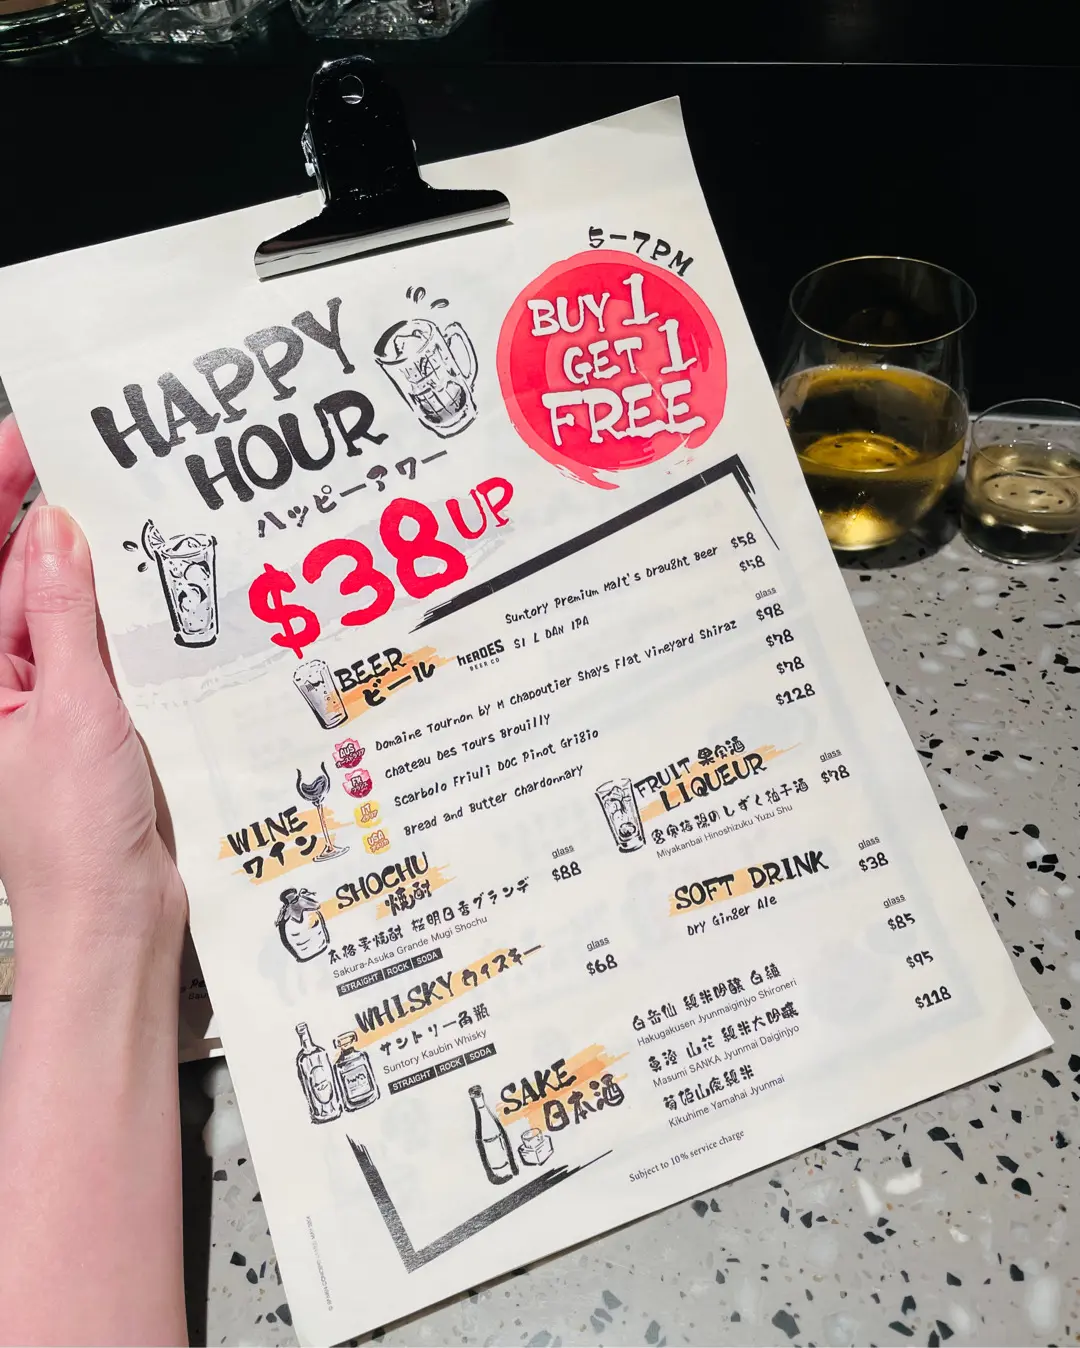 5-7PM
BUY 1
GET 1
FREE
HAPPY
HOUR
ハッピーアワー
$38 UP
BEER
ビール
Suntory Premium Malt's Draught Beer $58
HEROES BEER CO SI L DAN IPA $58
WINE
ワイン
glass
AUS Domaine Tournon by M Chapoutier Shays Flat Vineyard Shiraz $98
Chateau Des Tours Brouilly $78
IT Scarbolo Friuli DOC Pinot Grigio $78
USA Bread and Butter Chardonnary $128
SHOCHU
焼酎
glass
本格麦焼酎 桜明日香グランデ $88
Sakura-Asuka Grande Mugi Shochu
STRAIGHT | ROCK | SODA
WHISKY ウイスキー
glass
サントリー角瓶 $68
Suntory Kaubin Whisky
STRAIGHT | ROCK | SODA
FRUIT 果実酒
LIQUEUR
glass
のしずく柚子酒 $78
Miyakanbai Hinoshizuku Yuzu Shu
SOFT DRINK
glass
Dry Ginger Ale $38
SAKE
日本酒
glass
白岳仙 純米吟醸 白練 $85
Hakugakusen Jyunmaiginjyo Shironeri
真澄 山花 純米大吟醸 $95
Masumi SANKA Jyunmai Daiginjyo
菊姫山廃純米 $118
Kikuhime Yamahai Jyunmai
Subject to 10% service charge